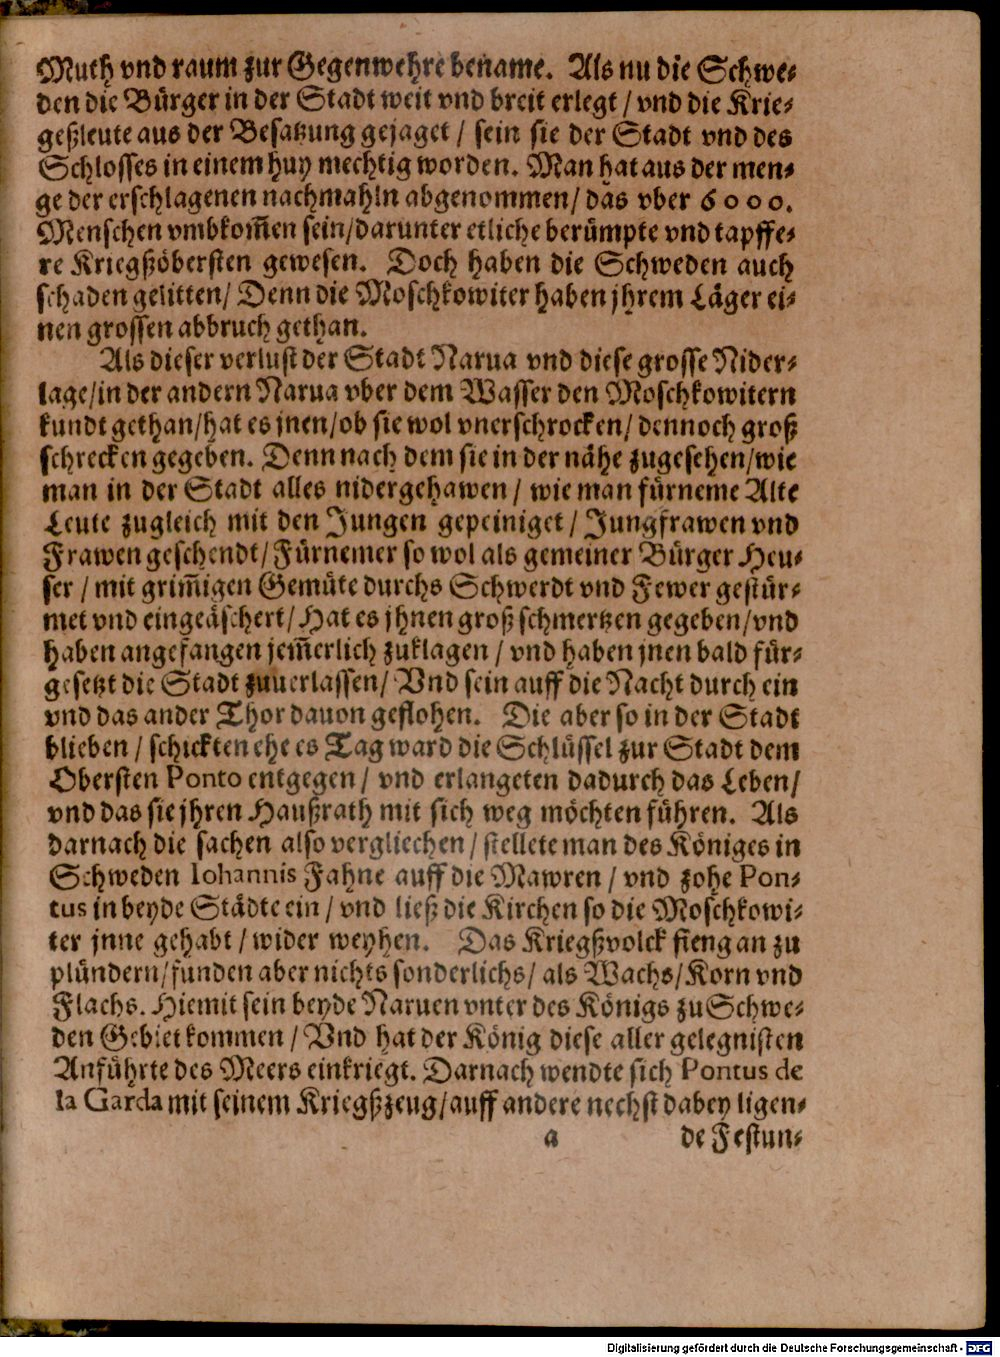 Muth vnd raum zur Gegenwehre bename. Als nu die Schwe⸗
den die Bürger in der Stadt weit vnd breit erlegt / vnd die Krie⸗
geßleute aus der Besatzung gejaget / sein sie der Stadt vnd des
Schlosses in einem huy mechtig worden. Man hat aus der men⸗
ge der erschlagenen nachmahln abgenommen / das vber 6000.
Menschen vmbkom̃en sein / darunter etliche berümpte vnd tapffe⸗
re Kriegßöbersten gewesen. Doch haben die Schweden auch
schaden gelitten / Denn die Moschkowiter haben jhrem Läger ei⸗
nen grossen abbruch gethan.
Als dieser verlust der Stadt Narua vnd diese grosse Nider⸗
lage / in der andern Narua vber dem Wasser den Moschkowitern
kundt gethan / hat es jnen / ob sie wol vnerschrocken / dennoch groß
schrecken gegeben. Denn nach dem sie in der nähe zugesehen / wie
man in der Stadt alles nidergehawen / wie man fürneme Alte
Leute zugleich mit den Jungen gepeiniget / Jungfrawen vnd
Frawen geschendt / Fürnemer so wol als gemeiner Bürger Heu⸗
ser / mit grim̃igen Gemüte durchs Schwerdt vnd Fewer gestür⸗
met vnd eingeäschert / Hat es jhnen groß schmertzen gegeben / vnd
haben angefangen jem̃erlich zuklagen / vnd haben jnen bald für⸗
gesetzt die Stadt zuuerlassen / Vnd sein auff die Nacht durch ein
vnd das ander Thor dauon geflohen. Die aber so in der Stadt
blieben / schickten ehe es Tag ward die Schlüssel zur Stadt dem
Obersten Ponto entgegen / vnd erlangeten dadurch das Leben /
vnd das sie jhren Haußrath mit sich weg möchten führen. Als
darnach die sachen also vergliechen / stellete man des Königes in
Schweden Iohannis Fahne auff die Mawren / vnd zohe Pon⸗
tus in beyde Städte ein / vnd ließ die Kirchen so die Moschkowi⸗
ter jnne gehabt / wider weyhen. Das Kriegßvolck fieng an zu
plündern / funden aber nichts sonderlichs / als Wachs / Korn vnd
Flachs. Hiemit sein beyde Naruen vnter des Königs zu Schwe⸗
den Gebiet kommen / Vnd hat der König diese aller gelegnisten
Anführte des Meers einkriegt. Darnach wendte sich Pontus de
la Garda mit seinem Kriegßzeug / auff andere nechst dabey ligen⸗
a de Festun⸗
Digitalisierung gefördert durch die Deutsche Forschungsgemeinschaft - DFG